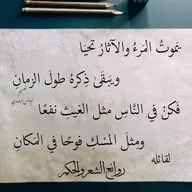 يَموتُ المَرءُ والآثارُ تَحيَا
ويبقَىٰ ذِكرهُ طولَ الزمانِ
فكنْ في النَّاسِ مثل الغيثِ نفعًا
ومثل المِسْكِ فَوحًا في المَكانِ
لقائله
روائع الشعر والحكم